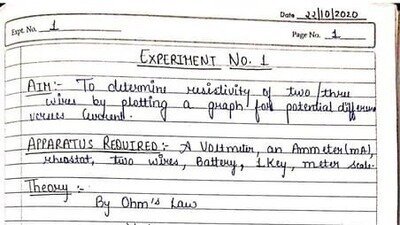 Date 22/10/2020
Expt. No. 1
Page No. 1
EXPERIMENT NO. 1
AIM:- To determine resistivity of two/three
wires by plotting a graph for potential differen
verses Current.
APPARATUS REQUIRED:- A Voltmeter, an Ammeter(mA),
rheostat, two wires, Battery, 1 Key, meter scale.
Theory:-
By Ohm's Law